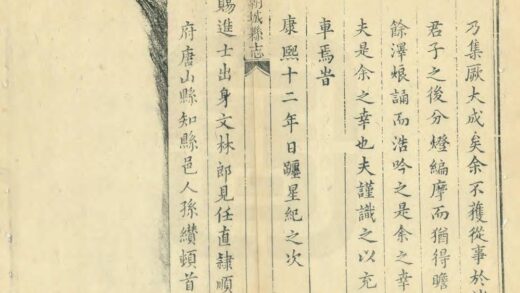 乃集厥大成矣余不獲從事於
君子之後分燈編摩而猶得瞻
餘澤烺誦而浩吟之是余之幸
夫是余之幸也夫謹識之以充
車焉旹
康熙十二年日躔星紀之次
新城縣志
賜進士出身文林郎見任直隸順
府唐山縣知縣邑人孫纘頓首